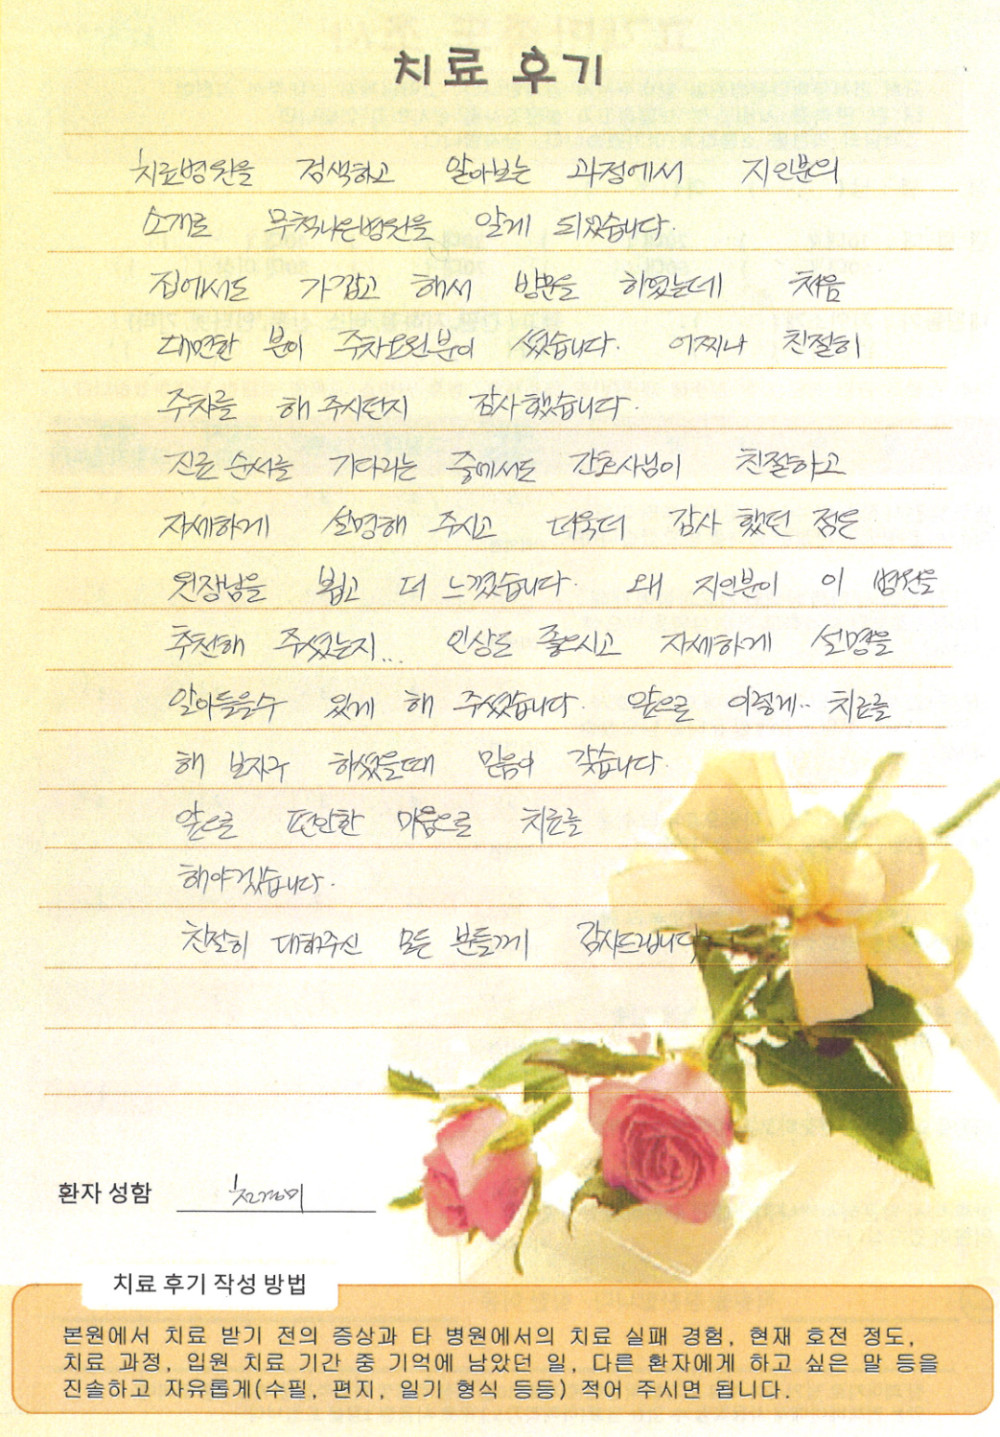 치료 후기
치료병원을 검색하고 알아보는 과정에서 지인분의
소개로 무척나은병원을 알게 되었습니다.
집에서도 가깝고 해서 방문을 하였는데 처음
대면한 분이 주차요원분이 셨습니다. 어찌나 친절히
주차를 해 주시던지 감사했습니다.
진료 순서를 기다리는 중에서도 간호사님이 친절하고
자세하게 설명해 주시고 더욱더 감사 했던 점은
원장님을 뵙고 더 느꼈습니다. 왜 지인분이 이 병원을
추천해 주셨는지... 인상도 좋으시고 자세하게 설명을
알아들을수 있게 해 주셨습니다. 앞으로 이렇게.. 치료를
해 보자구 하셨을때 믿음이 갖습니다.
앞으로 편안한 마음으로 치료를
해야겠습니다.
친절히 대해주신 모든 분들께 감사드립니다.
환자 성함
치료 후기 작성 방법
본원에서 치료 받기 전의 증상과 타 병원에서의 치료 실패 경험, 현재 호전 정도,
치료 과정, 입원 치료 기간 중 기억에 남았던 일, 다른 환자에게 하고 싶은 말 등을
진솔하고 자유롭게(수필, 편지, 일기 형식 등등) 적어 주시면 됩니다.